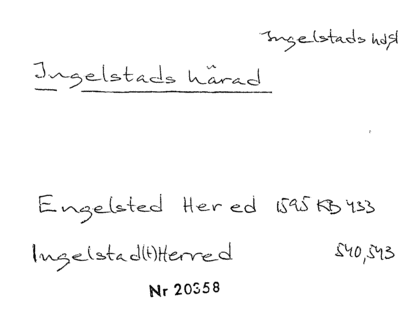 Ingelstads hd
Ingelstads härad
Engelsted Herred 1595 KB 433
Ingelstad(t)Herred 540,543
Nr 20358